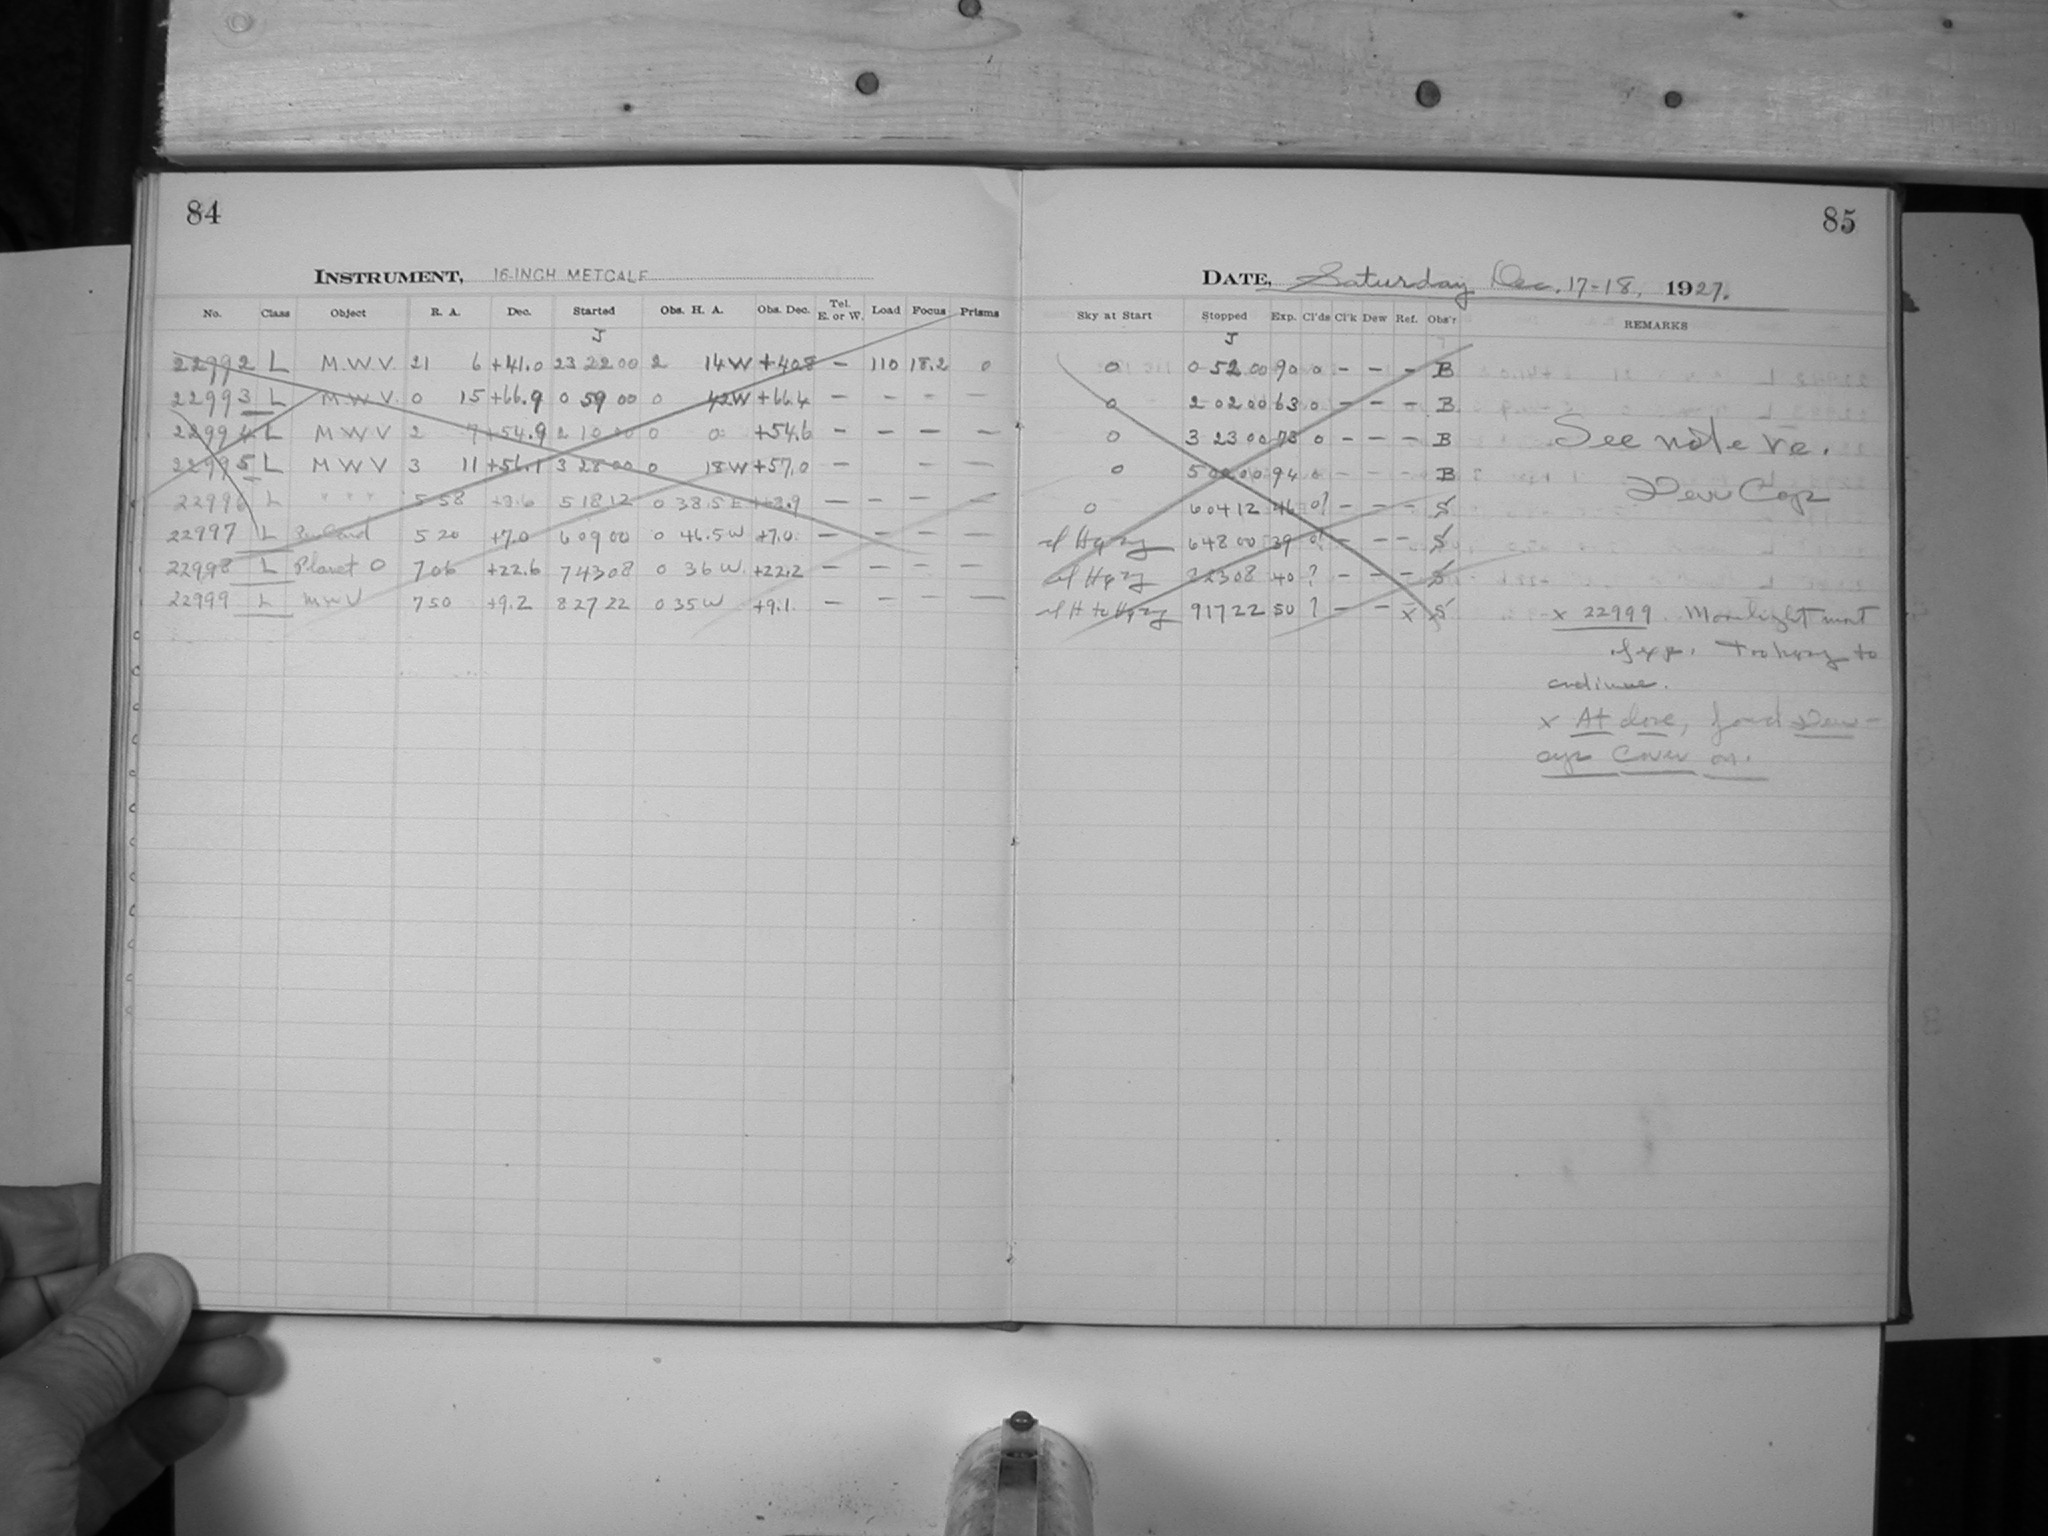 84
INSTRUMENT, 16-INCH METCALF
No. Class Object R. A. Dec. Started Obs. H. A. Obs. Dec. Tel. E. or W. Load Focus Prisms
J
22992 L M.W.V. 21 6 +41.0 23 22 00 2 14W +40.8 — 110 18.2 0
22993 L M.W.V. 0 15 +66.9 0 59 00 0 42W +66.4 — — — —
22994 L M W V 2 7 +54.9 2 10 00 0 0 +54.6 — — — —
22995 L M W V 3 11 +56.1 3 28 00 0 18W +57.0 — — —
22996 L " " " 5 58 +3.6 5 18 12 0 38.5 E +3.9 — — — —
22997 L 5 20 +7.0 6 09 00 0 46.5 W +7.0 — — — —
22998 L Planet O 7 06 +22.6 7 43 08 0 36 W. +22.2 — — — —
22999 L MWV 7 50 +9.2 8 27 22 0 35 W +9.1 — — — —
85
DATE, Saturday Dec. 17-18, 1927.
Sky at Start Stopped Exp. Cl'ds Cl'k Dew Ref. Obs'r REMARKS
J
0 0 52 00 90 0 — — — B
0 2 02 00 63 0 — — — B
0 3 23 00 73 0 — — — B See note re.
0 5 00 94 0 — — — B Dew Cap
0 6 04 12 46 0? — — — S
6 48 00 39 0? — — — S
23 08 40 ? — — — S
9 17 22 50 ? — — x S x 22999. Moonlight most
of exp. Too hazy to
continue.
x At close, found Dew-
cap Cover on.